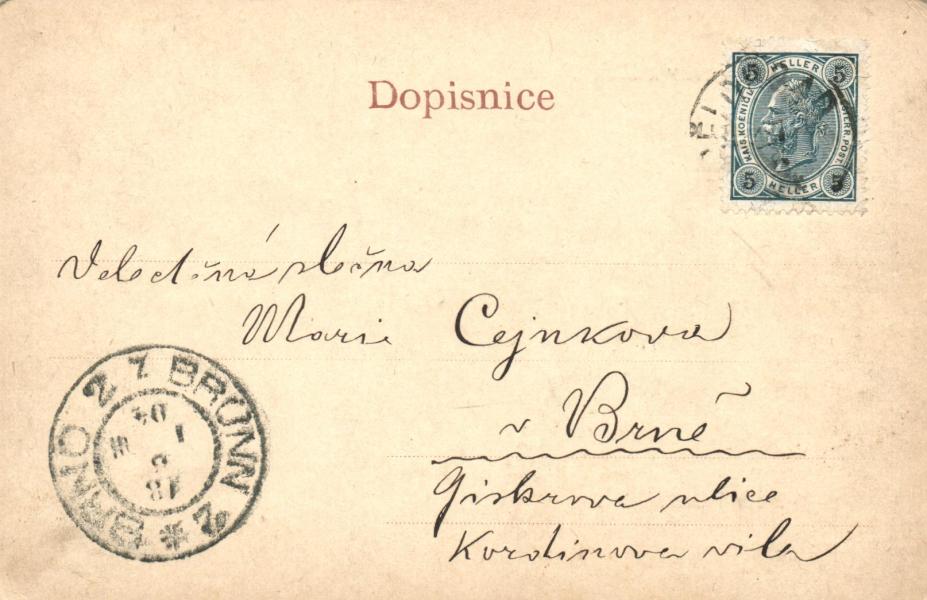 Dopisnice
5 HELLER 5
KAIS. KOENIGL. OESTERR. POST.
5 HELLER 5
Velectěná slečna
Marie Cejnkova
v Brně
Giskrova ulice
Kordinova vila
BRÜNN 2
BRNO 2